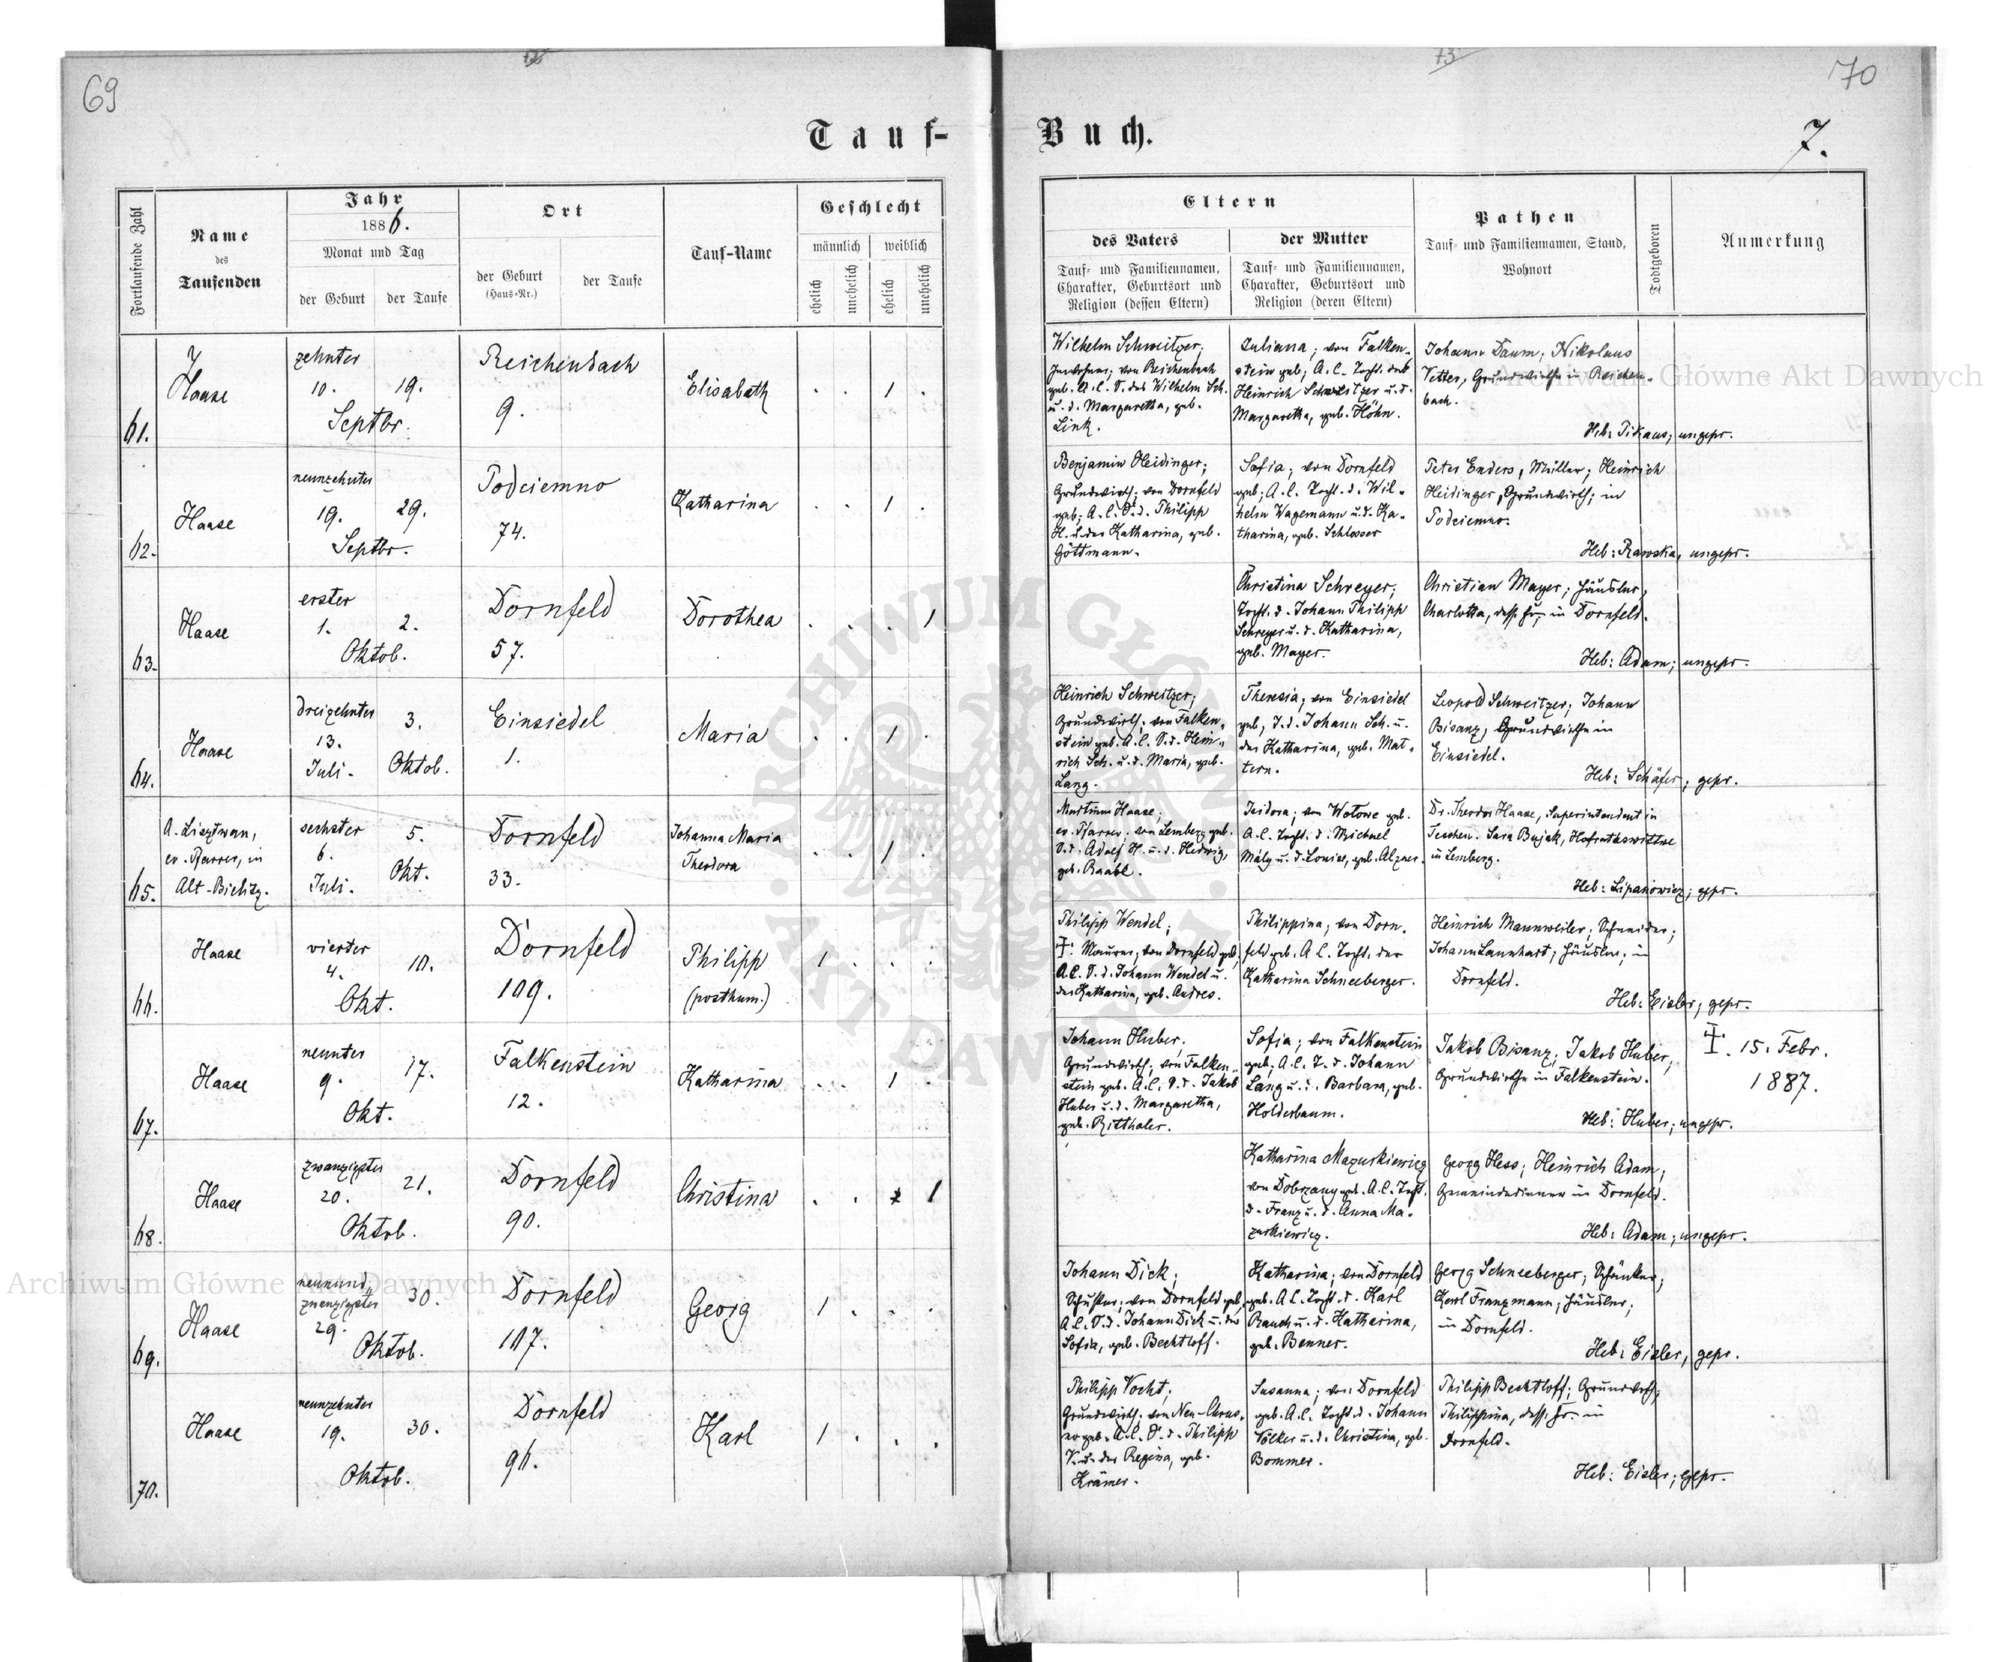 69
70
Tauf-Buch.
7.
Fortlaufende Zahl
Name
des
Taufenden
Jahr
1886.
Monat und Tag
der Geburt
der Taufe
Ort
der Geburt
(Haus-Nr.)
der Taufe
Tauf-Name
Geschlecht
männlich
weiblich
ehelich
unehelich
ehelich
unehelich
Eltern
des Vaters
Tauf- und Familiennamen,
Charakter, Geburtsort und
Religion (dessen Eltern)
der Mutter
Tauf- und Familiennamen,
Charakter, Geburtsort und
Religion (deren Eltern)
Pathen
Tauf- und Familiennamen, Stand,
Wohnort
Todtgeboren
Anmerkung
61.
Haase
zehnter
10. 19.
Septbr.
Reichenbach
9.
Elisabeth
. . 1 .
Wilhelm Schweitzer;
Inwohner; von Reichenbach
geb. A.C. S. des Wilhelm Sch.
u. d. Margaretha, geb.
Link.
Juliana; von Falken-
stein geb; A.C. Tocht. des
Heinrich Schweitzer u. d.
Margaretha, geb. Höhn.
Johann Daum; Nikolaus
Vetter, Grundwirthe in Reichen-
bach.
Heb: Pikaus; ungepr.
62.
Haase
neunzehnter
19. 29.
Septbr.
Podciemno
74.
Katharina
. . 1 .
Benjamin Heidinger;
Grundwirth; von Dornfeld
geb; A.C. S. d. Philipp
H. u. der Katharina, geb.
Göttmann.
Sofia; von Dornfeld
geb; A.C. Tocht. d. Wil-
helm Wagemann u. d. Ka-
tharina, geb. Schlosser
Peter Enders, Müller; Heinrich
Heidinger, Grundwirth; in
Podciemno.
Heb: Rawska, ungepr.
63.
Haase
erster
1. 2.
Oktob.
Dornfeld
57.
Dorothea
. . . 1
Christina Schreyer;
Tocht. d. Johann Philipp
Schreyer u. d. Katharina,
geb. Mayer.
Christian Mayer; Häusler,
Charlotta, dess. Fr; in Dornfeld.
Heb: Adam; ungepr.
64.
Haase
dreizehnter 3.
13.
Juli. Oktob.
Einsiedel
1.
Maria
. . 1 .
Heinrich Schweitzer;
Grundwirth; von Falken-
stein geb. A.C. S. d. Hein-
rich Sch. u. d. Maria, geb.
Lang.
Theresia; von Einsiedel
geb, T. d. Johann Sch. u.
der Katharina, geb. Mat-
tern.
Leopold Schweitzer; Johann
Bisanz, Grundwirthe in
Einsiedel.
Heb: Schäfer; gepr.
65.
A. Lisztwan,
ev. Pfarrer, in
Alt-Bielitz.
sechster 5.
6.
Juli. Okt.
Dornfeld
33.
Johanna Maria
Theodora
. . 1 .
Martin Haase;
ev. Pfarrer; von Lemberg geb.
S. d. Adolf H. u. d. Hedwig,
geb. Raabe.
Isidora; von Wolowe geb.
A.C. Tocht. d. Michael
Mály u. d. Louise, geb. Alzner.
Dr. Theodor Haase, Superintendent in
Teschen. Sara Bujak, Hofrathswittwe
in Lemberg.
Heb: Lipanowicz; gepr.
66.
Haase
vierter
4. 10.
Okt.
Dornfeld
109.
Philipp
(posthum.)
1 . . .
Philipp Wendel;
‡. Maurer, von Dornfeld geb,
A.C. S. d. Johann Wendel u.
der Katharina, geb. Andres.
Philippina; von Dorn-
feld geb. A.C. Tocht. der
Katharina Schneeberger.
Heinrich Mannweiler; Schneider;
Johann Lannhart; Häusler; in
Dornfeld.
Heb: Eisler; gepr.
67.
Haase
neunter
9. 17.
Okt.
Falkenstein
12.
Katharina
. . 1 .
Johann Huber,
Grundwirth; von Falken-
stein geb. A.C. S. d. Jakob
Huber u. d. Margaretha,
geb. Ritthaler.
Sofia; von Falkenstein
geb; A.C. T. d. Johann
Lang u. d. Barbara, geb.
Holderbaum.
Jakob Bisanz; Jakob Huber;
Grundwirthe in Falkenstein.
Heb: Huber; ungepr.
‡. 15. Febr.
1887.
68.
Haase
zwanzigster
20. 21.
Oktob.
Dornfeld
90.
Christina
. . 1
Katharina Mazurkiewicz
von Dobrzany geb. A.C. Tocht.
d. Franz u. d. Anna Ma-
zurkiewicz.
Georg Hess; Heinrich Adam;
Gemeindediener in Dornfeld.
Heb: Adam; ungepr.
69.
Haase
neunund-
zwanzigster
29. 30.
Oktob.
Dornfeld
107.
Georg
1 . . .
Johann Dick;
Schuster; von Dornfeld geb,
A.C. S. d. Johann Dick u. der
Sofia, geb. Bechtloff.
Katharina; von Dornfeld
geb. A.C. Tocht. d. Karl
Rauch u. d. Katharina,
geb. Benner.
Georg Schneeberger; Schänker;
Karl Franzmann; Häusler;
in Dornfeld.
Heb: Eisler, gepr.
70.
Haase
neunzehnter
19. 30.
Oktob.
Dornfeld
96.
Karl
1 . . .
Philipp Vocht;
Grundwirth; von Neu-Chrus-
no geb. A.C. S. d. Philipp
V. u. der Regina, geb.
Krämer.
Susanna; von Dornfeld
geb. A.C. Tocht. d. Johann
Völker u. d. Christina, geb.
Bommer.
Philipp Bechtloff; Grundwirth;
Philippina, dess. Fr. in
Dornfeld.
Heb: Eisler; gepr.
Archiwum Główne Akt Dawnych
Archiwum Główne Akt Dawnych
ARCHIWUM GŁÓWNE AKT DAWNYCH